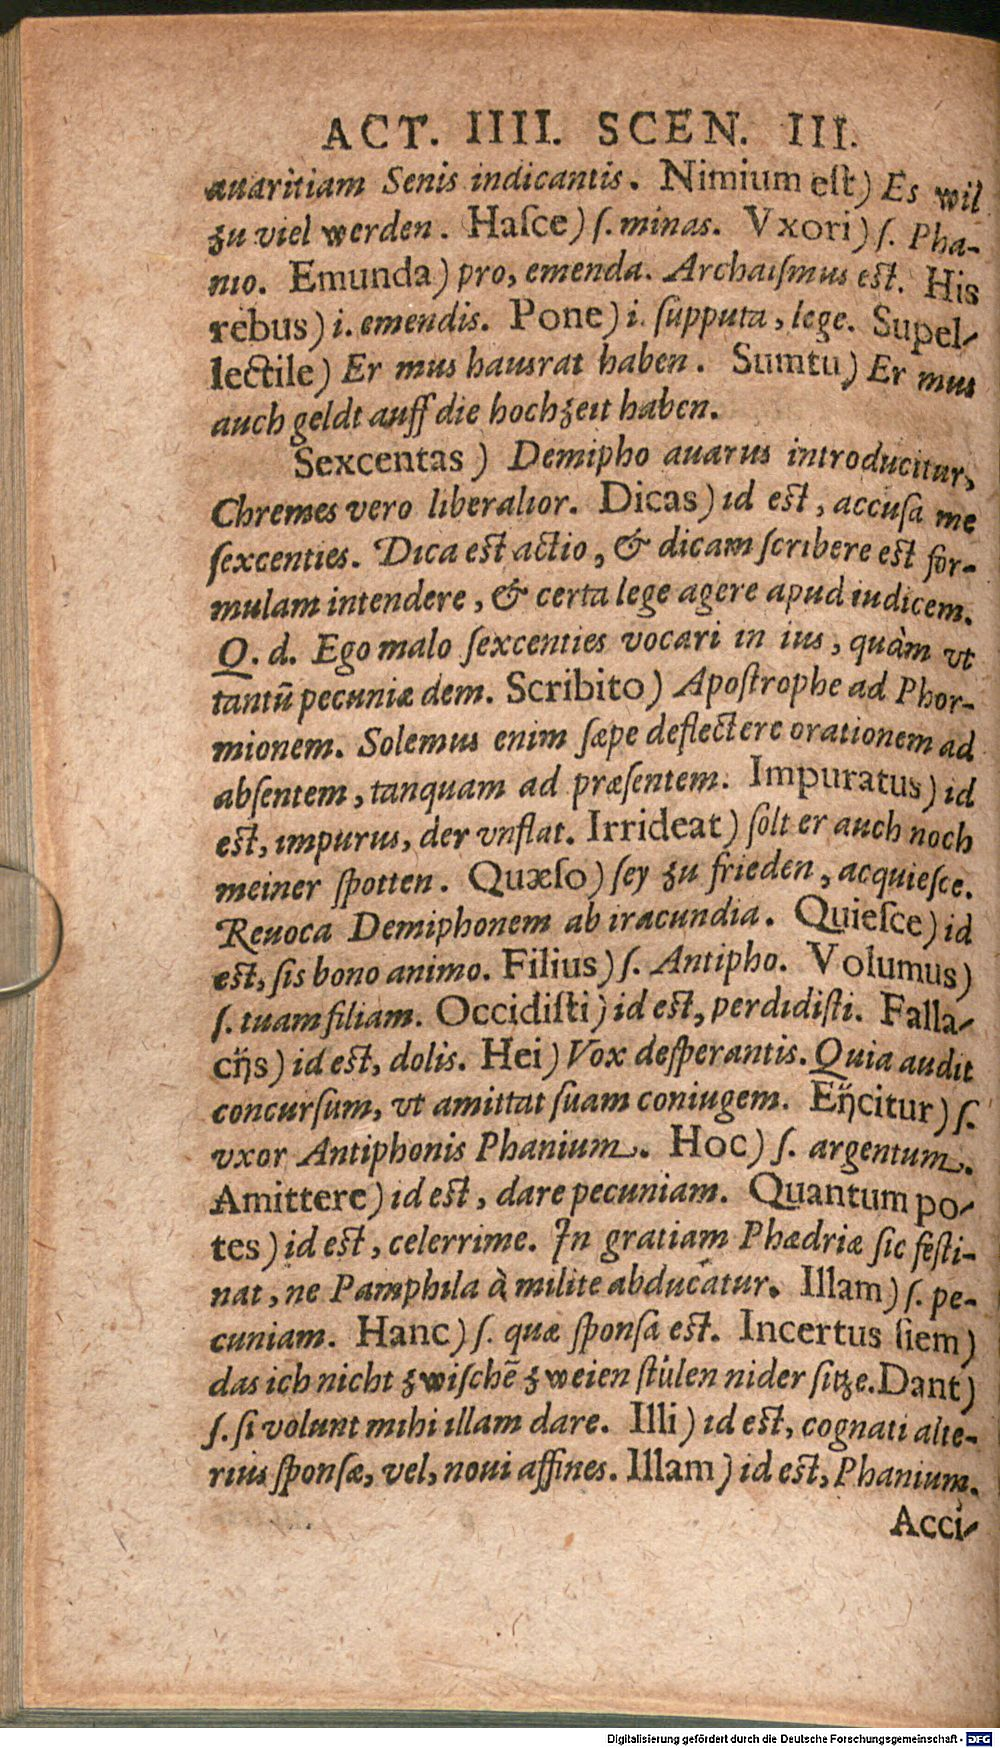 ACT. IIII. SCEN. III.
auaritiam Senis indicantis. Nimium eſt) Es wil
zu viel werden. Haſce) ſ. minas. Vxori) ſ. Pha-
nio. Emunda) pro, emenda. Archaiſmus eſt. His
rebus) i. emendis. Pone) i. ſupputa, lege. Supel-
lectile) Er mus hausrat haben. Sumtu) Er mus
auch geldt auff die hochzeit haben.
Sexcentas) Demipho auarus introducitur,
Chremes vero liberalior. Dicas) id eſt, accuſa me
ſexcenties. Dica eſt actio, & dicam ſcribere eſt for-
mulam intendere, & certa lege agere apud iudicem.
Q. d. Ego malo ſexcenties vocari in ius, quàm vt
tantū pecuniæ dem. Scribito) Apoſtrophe ad Phor-
mionem. Solemus enim ſæpe deflectere orationem ad
abſentem, tanquam ad præſentem. Impuratus) id
eſt, impurus, der vnflat. Irrideat) ſolt er auch noch
meiner ſpotten. Quæſo) ſey zu frieden, acquieſce.
Reuoca Demiphonem ab iracundia. Quieſce) id
eſt, ſis bono animo. Filius) ſ. Antipho. Volumus)
ſ. tuam filiam. Occidiſti) id eſt, perdidiſti. Falla-
cÿs) id eſt, dolis. Hei) Vox deſperantis. Quia audit
concurſum, vt amittat ſuam coniugem. Eÿcitur) ſ.
vxor Antiphonis Phanium. Hoc) ſ. argentum.
Amittere) id eſt, dare pecuniam. Quantum po-
tes) id eſt, celerrime. In gratiam Phædriæ ſic feſti-
nat, ne Pamphila à milite abducatur. Illam) ſ. pe-
cuniam. Hanc) ſ. quæ ſponſa eſt. Incertus ſiem)
das ich nicht zwiſchē zweien ſtülen nider ſitze. Dant)
ſ. ſi volunt mihi illam dare. Illi) id eſt, cognati alte-
rius ſponſæ, vel, noui affines. Illam) id eſt, Phanium.
Acci-
Digitalisierung gefördert durch die Deutsche Forschungsgemeinschaft - DFG